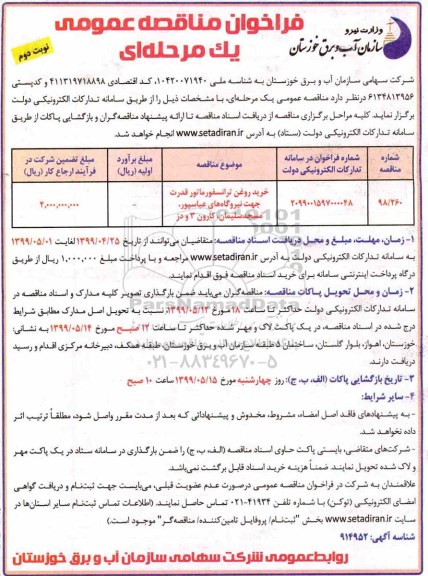 وزارت نیرو
سازمان آب و برق خوزستان
فراخوان مناقصه عمومی
یك مرحله‌ای
نوبت دوم
شرکت سهامی سازمان آب و برق خوزستان به شناسه ملی ۱۰۴۲۰۰۷۱۹۴۰، کد اقتصادی ۴۱۱۳۱۹۷۱۸۸۹۸ و کدپستی
۶۱۳۴۸۱۳۹۵۶ درنظر دارد مناقصه عمومی یک مرحله‌ای، با مشخصات ذیل را از طریق سامانه تدارکات الکترونیکی دولت
برگزار نماید. کلیه مراحل برگزاری مناقصه از دریافت اسناد مناقصه تا ارائه پیشنهاد مناقصه‌گران و بازگشایی پاکات از طریق
سامانه تدارکات الکترونیکی دولت (ستاد) به آدرس www.setadiran.ir انجام خواهد شد.
شماره مناقصه | شماره فراخوان در سامانه تدارکات الکترونیکی دولت | موضوع مناقصه | مبلغ برآورد اولیه (ریال) | مبلغ تضمین شرکت در فرآیند ارجاع کار (ریال)
۹۸/۲۶۰ | ۲۰۹۹۰۰۱۵۹۷۰۰۰۰۴۸ | خرید روغن ترانسفورماتور قدرت جهت نیروگاه‌های عباسپور، مسجدسلیمان، کارون ۳ و دز | - | ۲,۰۰۰,۰۰۰,۰۰۰
۱- زمان، مهلت، مبلغ و محل دریافت اسناد مناقصه: متقاضیان می‌توانند از تاریخ ۱۳۹۹/۰۴/۲۵ لغایت ۱۳۹۹/۰۵/۰۱
به سامانه تدارکات الکترونیکی دولت به آدرس www.setadiran.ir مراجعه و با پرداخت مبلغ ۱,۰۰۰,۰۰۰ ریال از طریق
درگاه پرداخت اینترنتی سامانه برای خرید اسناد مناقصه فوق اقدام نمایند.
۲- زمان و محل تحویل پاکات مناقصه: مناقصه‌گران می‌باید ضمن بارگذاری تصویر کلیه مدارک و اسناد مناقصه در
سامانه تدارکات الکترونیکی دولت حداکثر تا ساعت ۱۸ مورخ ۱۳۹۹/۰۵/۱۳، نسبت به تحویل اصل مدارک مطابق شرایط
درج شده در اسناد مناقصه، در یک پاکت لاک و مهر شده حداکثر تا ساعت ۱۲ صبح مورخ ۱۳۹۹/۰۵/۱۴ به نشانی:
خوزستان، اهواز، بلوار گلستان، ساختمان ۵ طبقه سازمان آب و برق خوزستان طبقه همکف، دبیرخانه مرکزی اقدام و رسید
دریافت دارند.
۳- تاریخ بازگشایی پاکات (الف، ب، ج): روز چهارشنبه مورخ ۱۳۹۹/۰۵/۱۵ ساعت ۱۰ صبح
۴- سایر شرایط:
- به پیشنهادهای فاقد اصل امضاء، مشروط، مخدوش و پیشنهاداتی که بعد از مدت مقرر واصل شود، مطلقاً ترتیب اثر
داده نخواهد شد.
- شرکت‌های متقاضی، بایستی پاکت حاوی اسناد مناقصه (الف، ب، ج) را ضمن بارگذاری در سامانه ستاد در یک پاکت مهر
و لاک شده تحویل نمایند. ضمناً هزینه خرید اسناد قابل برگشت نمی‌باشد.
علاقمندان به شرکت در فراخوان مناقصه عمومی درصورت عدم عضویت قبلی، می‌بایست جهت ثبت‌نام و دریافت گواهی
امضای الکترونیکی (توکن) با شماره تلفن ۴۱۹۳۴-۰۲۱ تماس حاصل نمایند. (اطلاعات تماس ثبت‌نام سایر استان‌ها در
سایت www.setadiran.ir بخش "ثبت‌نام/ پروفایل تامین‌کننده/ مناقصه‌گر" موجود است.)
شناسه آگهی: ۹۱۴۹۵۲
روابط‌عمومی شرکت سهامی سازمان آب و برق خوزستان
ParsNamadData
۰۲۱-۸۸۳۴۹۶۷۰-۵